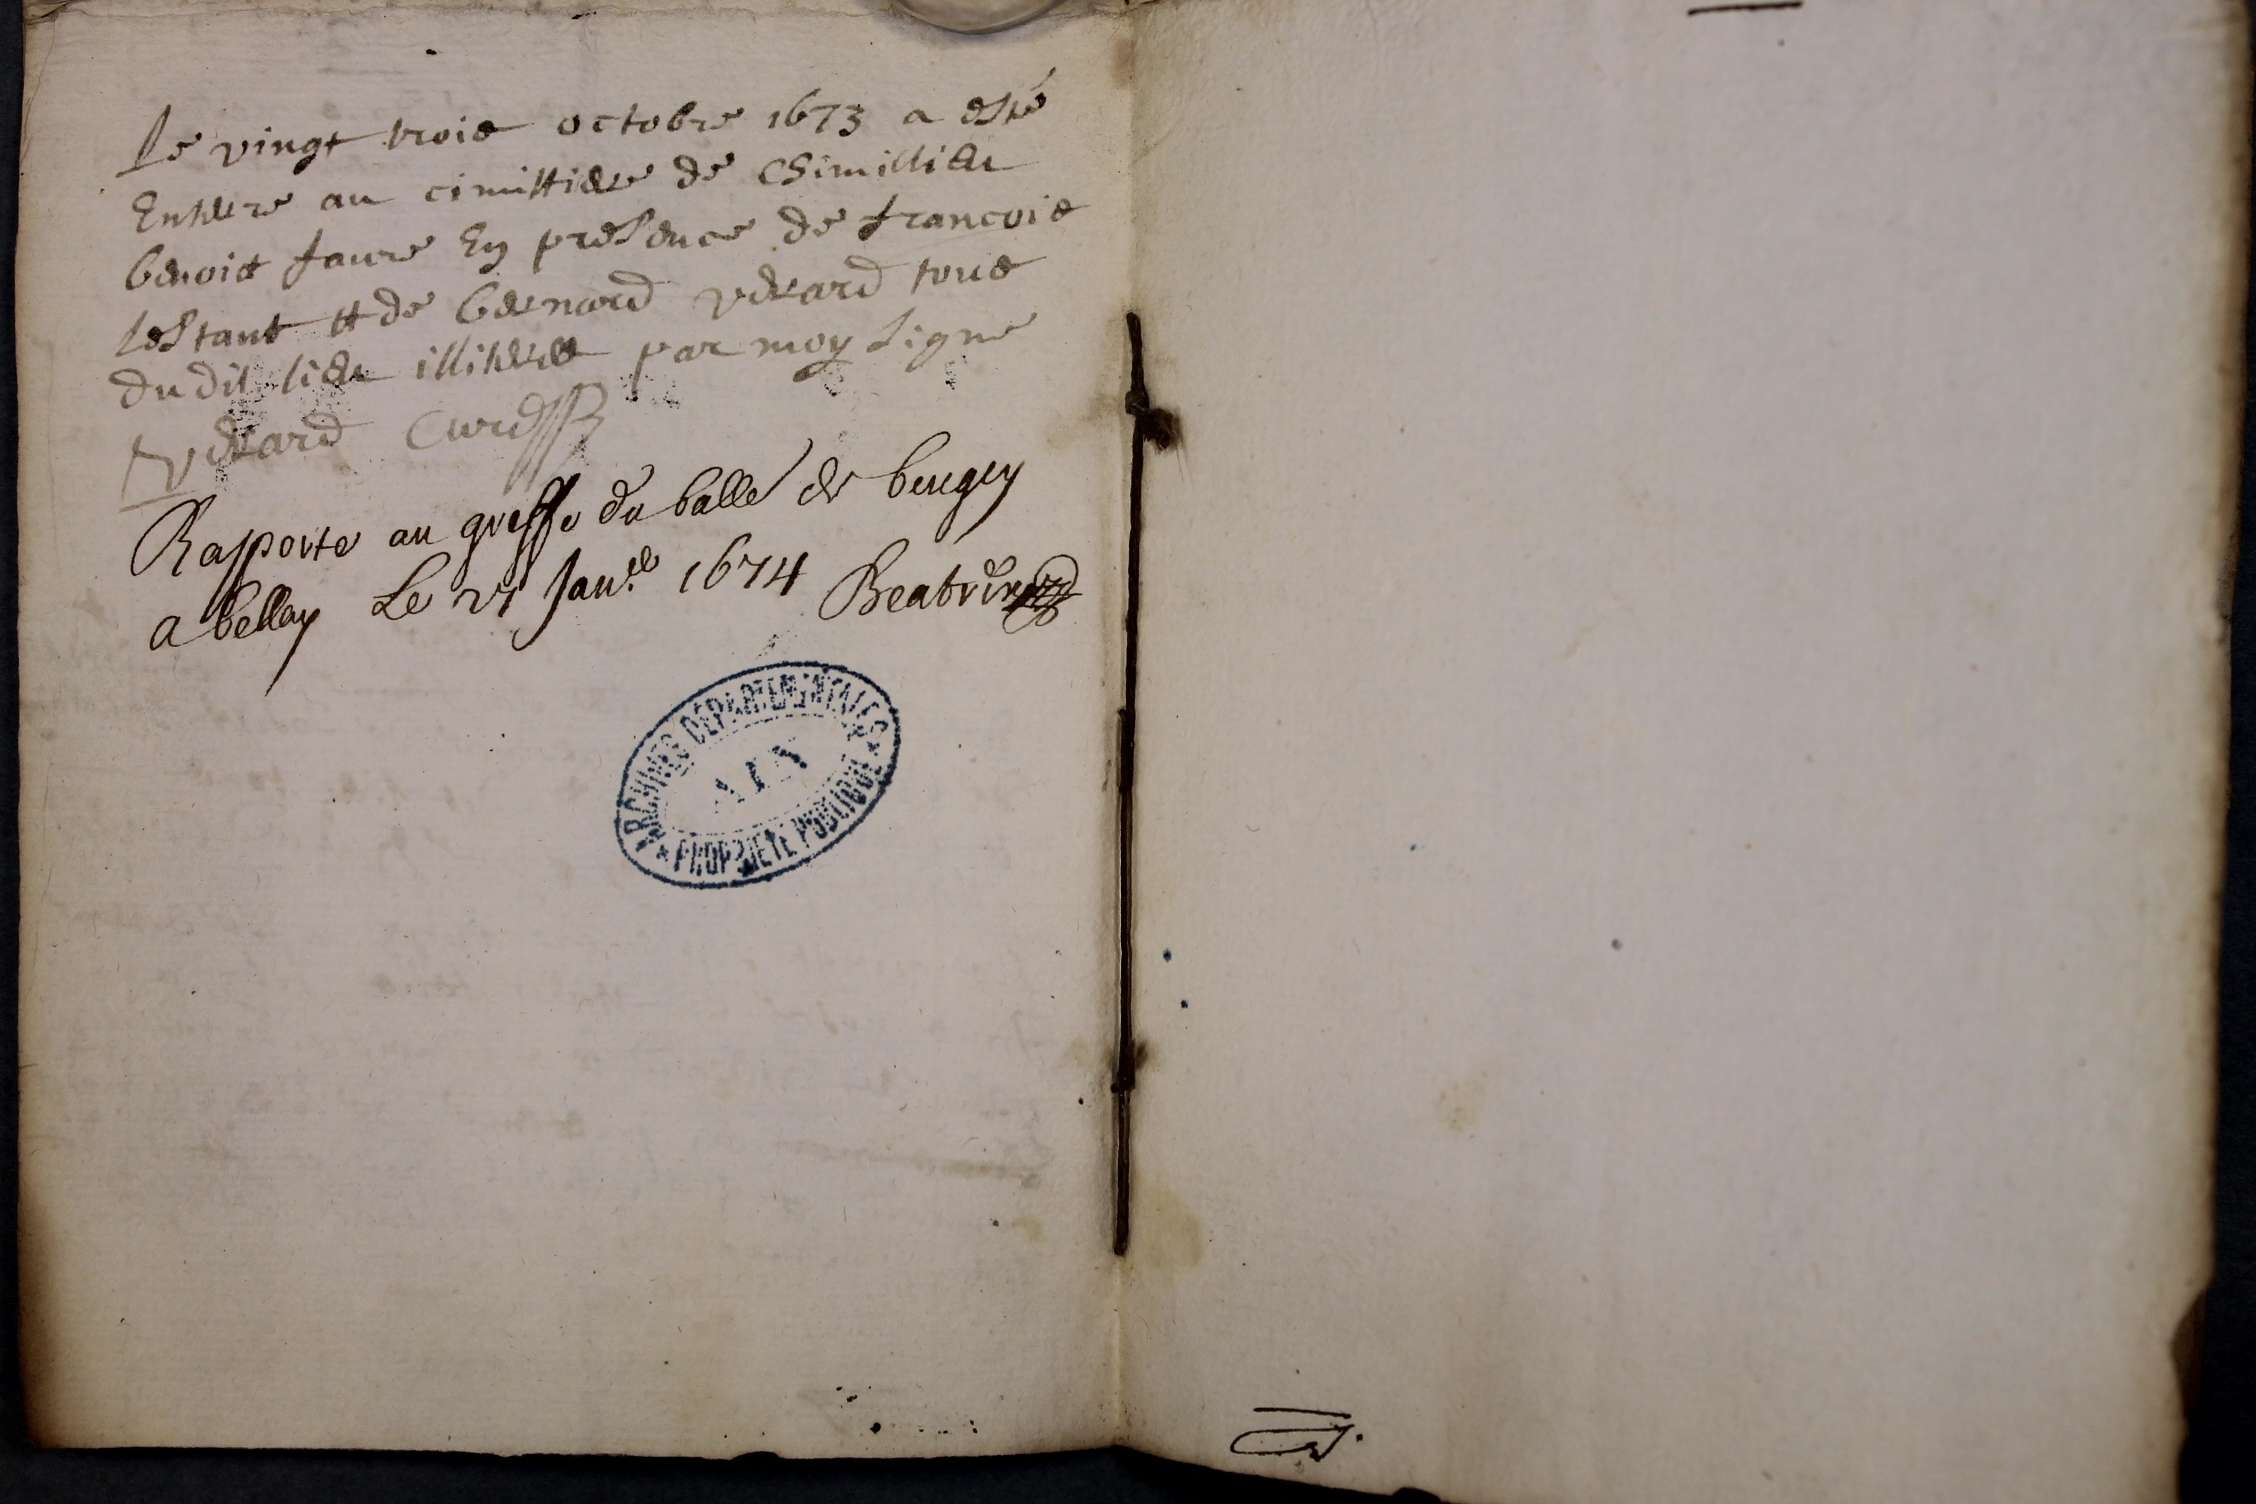 Le vingt trois octobre 1673 a esté
Enterre au cimittiere de Chimillieu
benoit faure En presence de francois
lestant et de bernard verard tous
du dit lieu illiteres par moy signe
Verard Cure
Rapporte au greffe du balle de bugey
a belley Le 21 Janer 1674
ARCHIVES DÉPARTEMENTALES
AIN
PROPRIÉTÉ PUBLIQUE